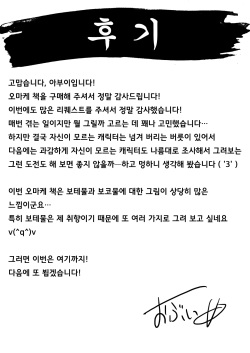 후기
고맙습니다, 아부이입니다!
오마케 책을 구매해 주셔서 정말 감사드립니다!
이번에도 많은 리퀘스트를 주셔서 정말 감사했습니다!
매번 겪는 일이지만 뭘 그릴까 고르는 데 꽤나 고민했습니다…
하지만 결국 자신이 모르는 캐릭터는 넘겨 버리는 버릇이 있어서
다음에는 과감하게 자신이 모르는 캐릭터도 나름대로 조사해서 그려보는
그런 도전도 해 보면 좋지 않을까—하고 멍하니 생각해 봤습니다 ( '3' )
이번 오마케 책은 보테물과 보코물에 대한 그림이 상당히 많은
느낌이군요…
특히 보테물은 제 취향이기 때문에 또 여러 가지로 그려 보고 싶네요
v(^q^)v
그러면 이번은 여기까지!
다음에 또 뵙겠습니다!
おぶい